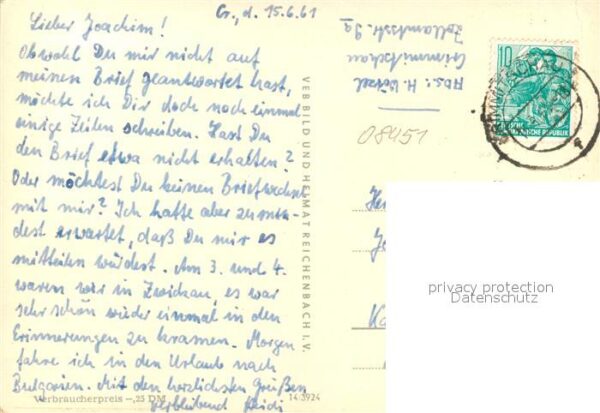 Cr., d. 15.6.61
Lieber Joachim!
Obwohl Du mir nicht auf
meinen Brief geantwortet hast,
möchte ich Dir doch noch einmal
einige Zeilen schreiben. Hast Du
den Brief etwa nicht erhalten?
Oder möchtest Du keinen Briefwechsel
mit mir? Ich hatte aber zumin-
dest erwartet, daß Du mir es
mitteilen würdest. Am 3. und 4.
waren wir in Zwickau, es war
sehr schön wieder einmal in den
Erinnerungen zu kramen. Morgen
fahre ich in den Urlaub nach
Bulgarien. Mit den herzlichsten Grüßen
verbleibend Heidi
Verbraucherpreis –,25 DM
14 3924
VEB BILD UND HEIMAT REICHENBACH I. V.
Abs.: H.
Crimmitschau
Zollamtsstr. 9a
08451
10
DEUTSCHE
DEMOKRATISCHE REPUBLIK
privacy protection
Datenschutz